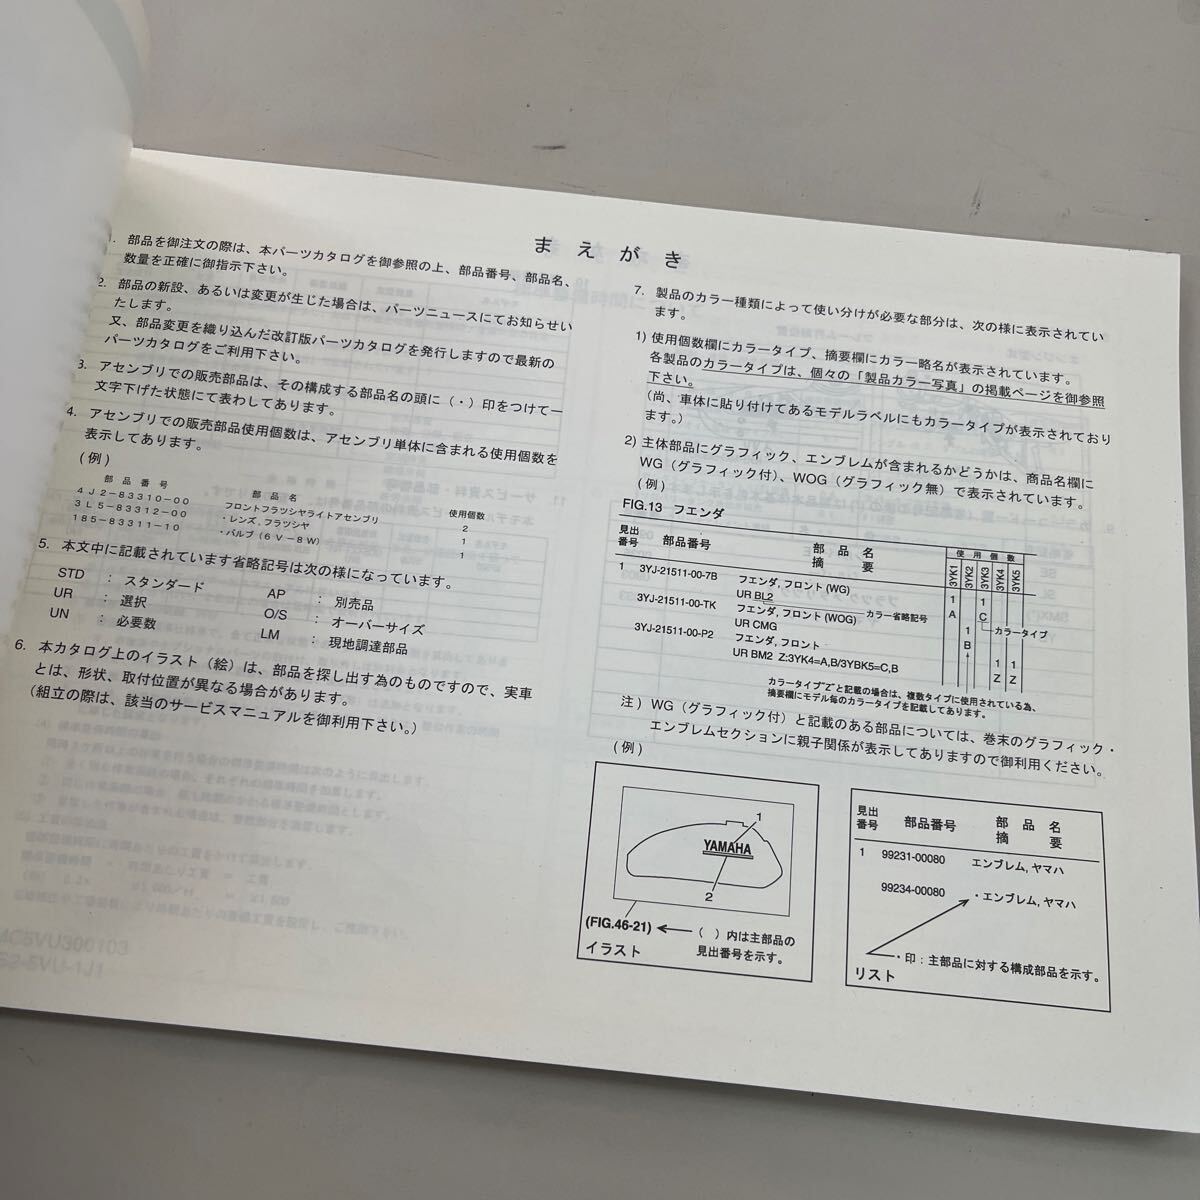 まえがき
1. 部品を御注文の際は、本パーツカタログを御参照の上、部品番号、部品名、
数量を正確に御指示下さい。
2. 部品の新設、あるいは変更が生じた場合は、パーツニュースにてお知らせい
たします。
又、部品変更を織り込んだ改訂版パーツカタログを発行しますので最新の
パーツカタログをご利用下さい。
3. アセンブリでの販売部品は、その構成する部品名の頭に(・)印をつけて一
文字下げた状態にて表わしてあります。
4. アセンブリでの販売部品使用個数は、アセンブリ単体に含まれる使用個数を
表示してあります。
(例)
部品番号 部品名 使用個数
4J2-83310-00 フロントフラツシヤライトアセンブリ 2
3L5-83312-00 ・レンズ,フラツシヤ 1
185-83311-10 ・バルブ(6V-8W) 1
5. 本文中に記載されています省略記号は次の様になっています。
STD : スタンダード AP : 別売品
UR : 選択 O/S : オーバーサイズ
UN : 必要数 LM : 現地調達部品
6. 本カタログ上のイラスト(絵)は、部品を探し出す為のものですので、実車
とは、形状、取付位置が異なる場合があります。
(組立の際は、該当のサービスマニュアルを御利用下さい。)
7. 製品のカラー種類によって使い分けが必要な部分は、次の様に表示されてい
ます。
1) 使用個数欄にカラータイプ、摘要欄にカラー略名が表示されています。
各製品のカラータイプは、個々の「製品カラー写真」の掲載ページを御参照
下さい。
(尚、車体に貼り付けてあるモデルラベルにもカラータイプが表示されており
ます。)
2) 主体部品にグラフィック、エンブレムが含まれるかどうかは、商品名欄に
WG(グラフィック付)、WOG(グラフィック無)で表示されています。
(例)
FIG.13 フエンダ
見出番号 部品番号 部品名 摘要 使用個数
3YK1 3YK2 3YK3 3YK4 3YK5
1 3YJ-21511-00-7B フエンダ,フロント(WG) 1 1
UR BL2 A C
3YJ-21511-00-TK フエンダ,フロント(WOG) カラー省略記号 1 カラータイプ
UR CMG B
3YJ-21511-00-P2 フエンダ,フロント 1 1
UR BM2 Z:3YK4=A,B/3YBK5=C,B Z Z
カラータイプ"Z"と記載の場合は、複数タイプに使用されている為、
摘要欄にモデル毎のカラータイプを記載してあります。
注) WG(グラフィック付)と記載のある部品については、巻末のグラフィック・
エンブレムセクションに親子関係が表示してありますので御利用ください。
(例)
1
YAMAHA
2
(FIG.46-21) ( )内は主部品の
見出番号を示す。
イラスト
見出番号 部品番号 部品名 摘要
1 99231-00080 エンブレム,ヤマハ
99234-00080 ・エンブレム,ヤマハ
・印:主部品に対する構成部品を示す。
リスト